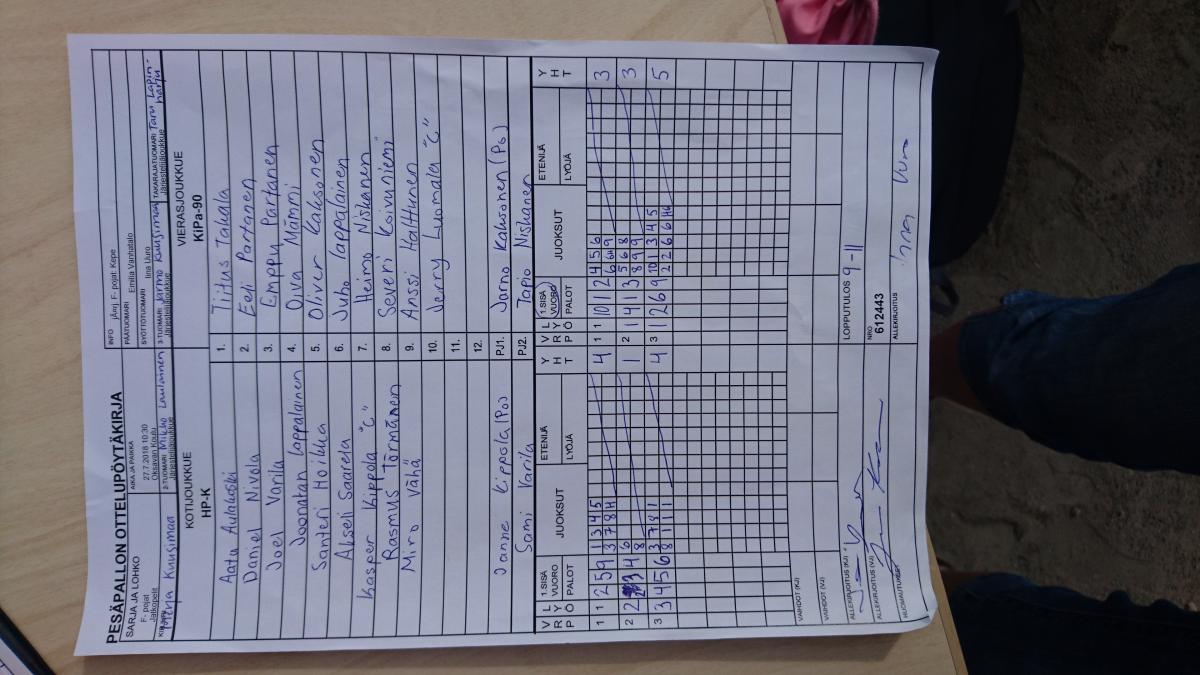 PESÄPALLON OTTELUPÖYTÄKIRJA
SARJA JA LOHKO
F- pojat
Jatkopelit
AIKA JA PAIKKA
27.7.2018 10:30
Oksavan Koulu
INFO jÄrnj. F- pojat: Kepe
PÄÄTUOMARI Emilia Vanhatalo
SYÖTTÖTUOMARI Iina Uuro
KIRJURI Kuusimaa
2-TUOMARI Mikko Laulainen
Järjestelijäjoukkue
3-TUOMARI Jarmo Kuusimaa
Järjestelijäjoukkue
TAKARAJATUOMARI Taru Lapinharju
Järjestelijäjoukkue
KOTIJOUKKUE
HP-K
VIERASJOUKKUE
KIPa-90
Aatu Aulakoski 1. Tiitus Takala
Daniel Nivola 2. Eeli Partanen
Joel Varila 3. Emppu Partanen
Joonatan Lappalainen 4. Oiva Mämmi
Santeri Hoikka 5. Oliver Kaksonen
Akseli Saarela 6. Juho Lappalainen
Kasper Kippola "C" 7. Heimo Niskanen
Rasmus Törmänen 8. Severi Koivuniemi
Miro Vähä 9. Anssi Halttunen
10. Jerry Luomala "C"
11.
12.
Janne Kippola (Po) PJ1. Jarno Kaksonen (Po)
Sami Varila PJ2. Tapio Niskanen
V R P L Y Ö 1.SISÄ VUORO PALOT JUOKSUT ETENIJÄ LYÖJÄ Y H T V R P L Y Ö 1.SISÄ VUORO PALOT JUOKSUT ETENIJÄ LYÖJÄ Y H T
1 1 2 5 9 1 3 4 5 4 1 1 10 1 2 4 5 6 3
3 7 8 11 6
2 2 3 4 6 1 2 1 4 1 3 5 6 8 3
8 8 9 9
3 3 4 5 6 3 7 8 1 4 3 1 2 6 9 10 1 3 4 5 5
8 1 1 1 2 2 6 6
VAIHDOT (KJ)
VAIHDOT (VJ)
ALLEKIRJOITUS (KJ)
LOPPUTULOS 9-11
ALLEKIRJOITUS (VJ)
NRO
612443
HUOMAUTUKSET
ALLEKIRJOITUS Iina Uuro